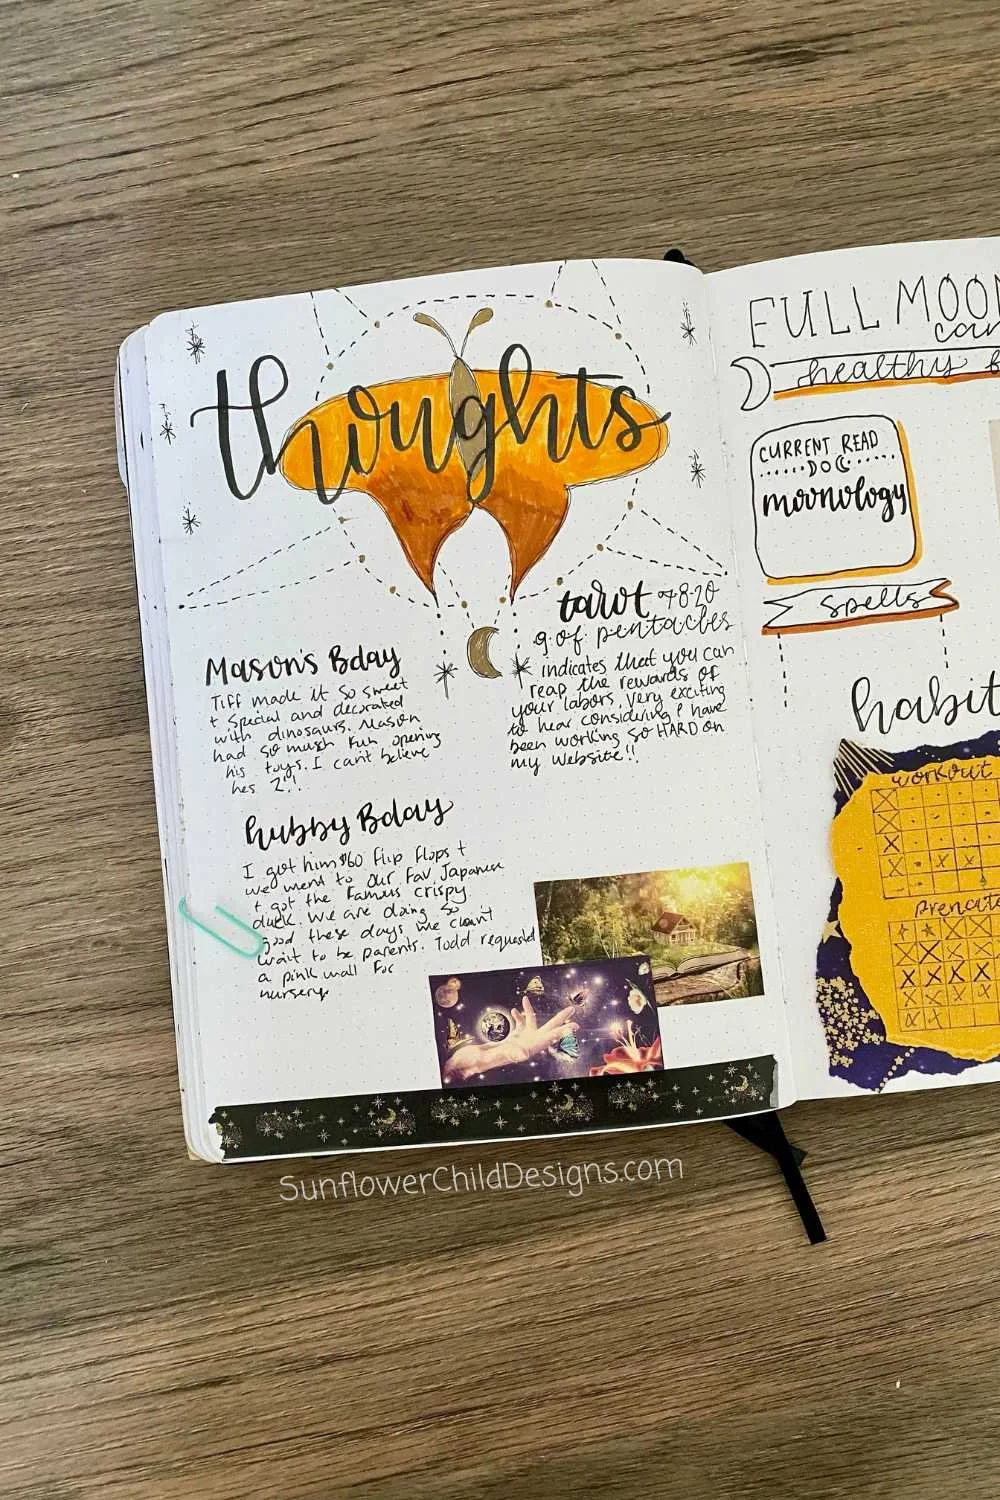 thoughts
Mason's Bday
Tiff made it so sweet
+ special and decorated
with dinosaurs. Mason
had so much fun opening
his toys. I can't believe
hes 2!!
tarot 7-8-20
9 of pentacles
indicates that you can
reap the rewards of
your labors. very exciting
to hear considering I have
been working SO HARD on
my website!!
hubby Bday
I got him $60 flip flops +
we went to our fav Japanese
+ got the famous crispy
duck. We are doing so
good these days we can't
wait to be parents. Todd requested
a pink wall for
nursery.
FULL MOON
healthy
CURRENT READ
moonology
spells
habit
workout
SunflowerChildDesigns.com